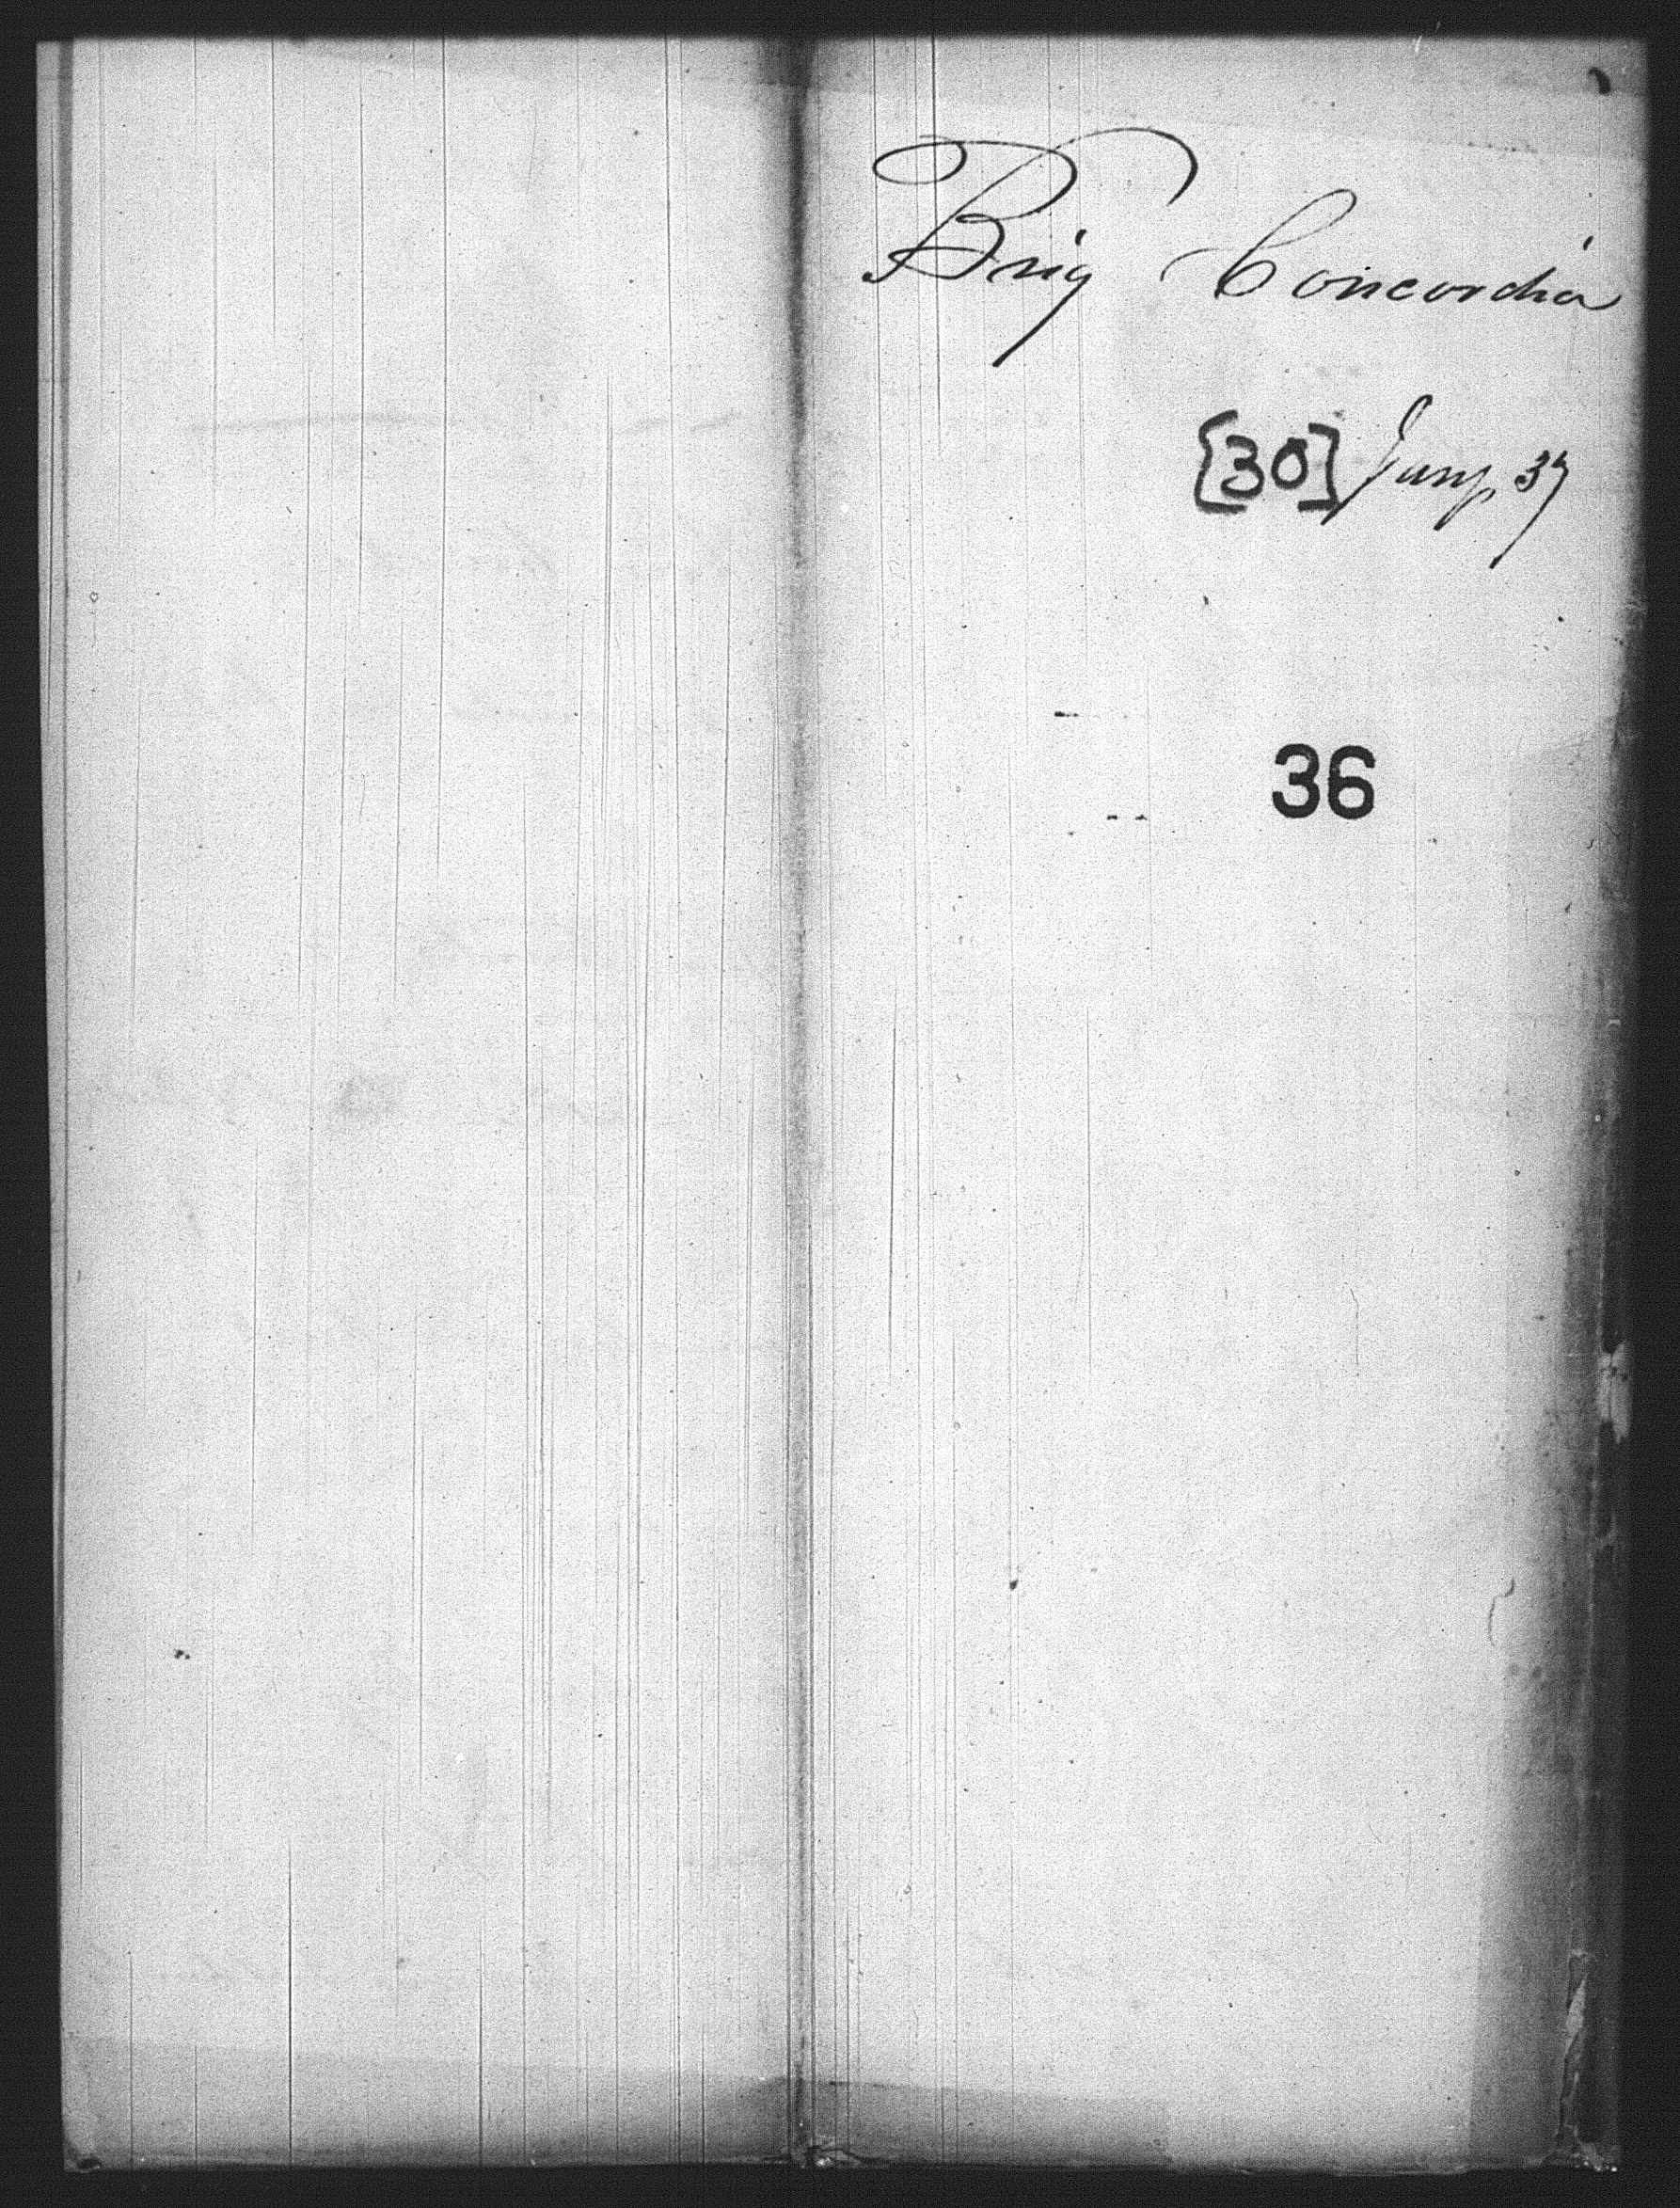 Brig Concordia
[30] Jany 37
36